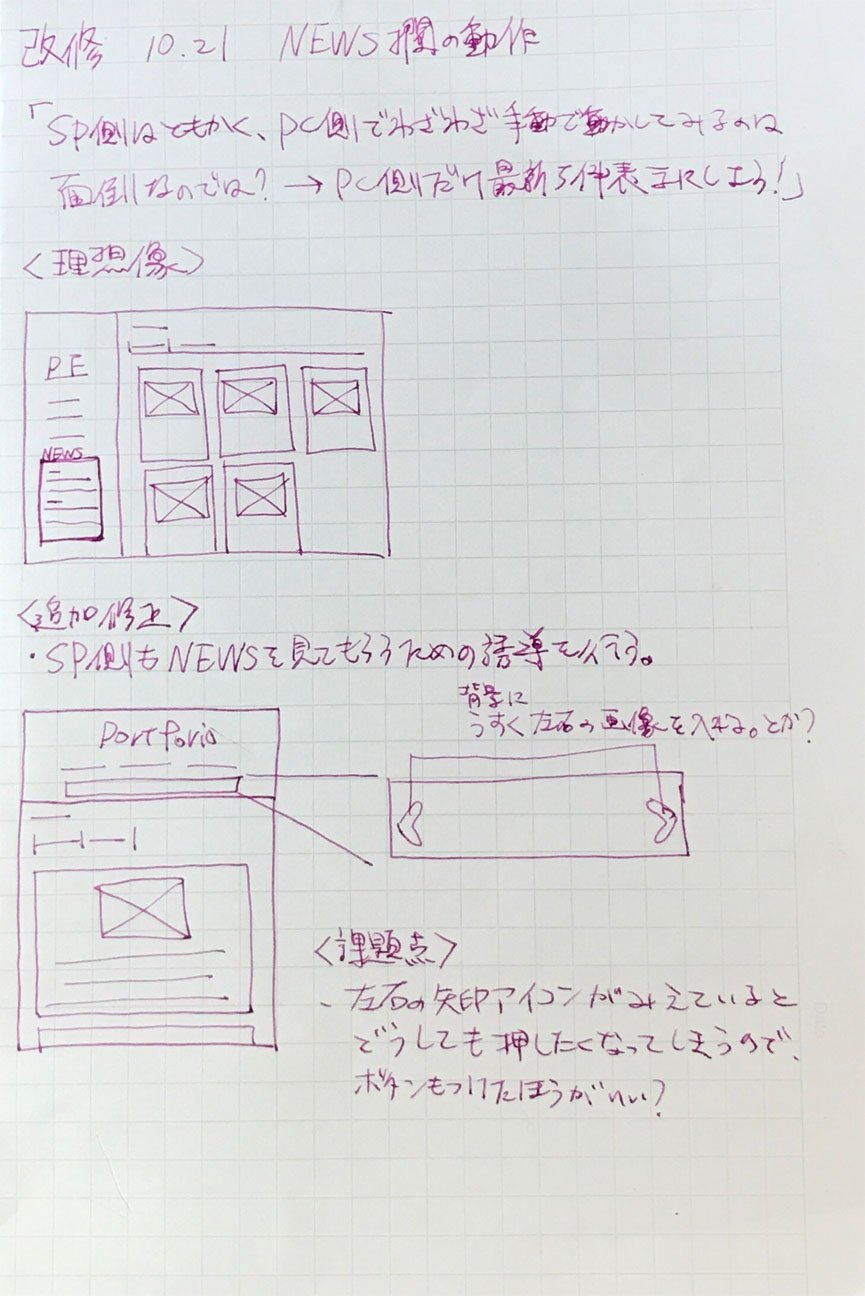 改修 10.21 NEWS欄の動作
「SP側はともかく、PC側でわざわざ手動で動かしてみるのは
面倒なのでは? → PC側だけ最新5件表示にしよう!」
<理想像>
PF
NEWS
<追加修正>
・SP側もNEWSを見てもらうための誘導を行う。
背景に
うすく左右の画像を入れる。とか?
Portforio
<課題点>
・左右の矢印アイコンがみえていると
どうしても押したくなってしまうので、
ボタンもつけたほうがいい?